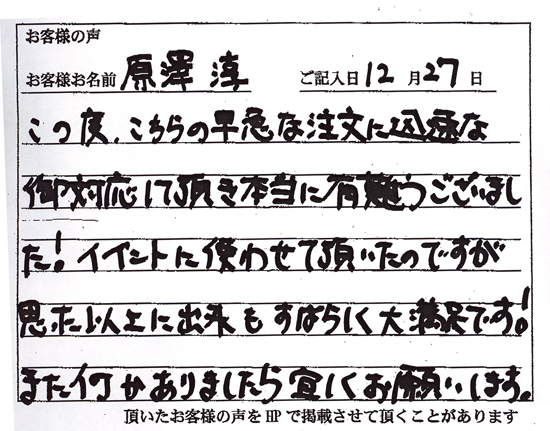 お客様の声
お客様お名前 原澤 淳 ご記入日 12 月 27 日
この度、こちらの早急な注文に迅速な
御対応して頂き本当に有難うございまし
た！イベントに使わせて頂いたのですが
思った以上に出来もすばらしく大満足です！
また何かありましたら宜しくお願いします。
頂いたお客様の声をHPで掲載させて頂くことがあります